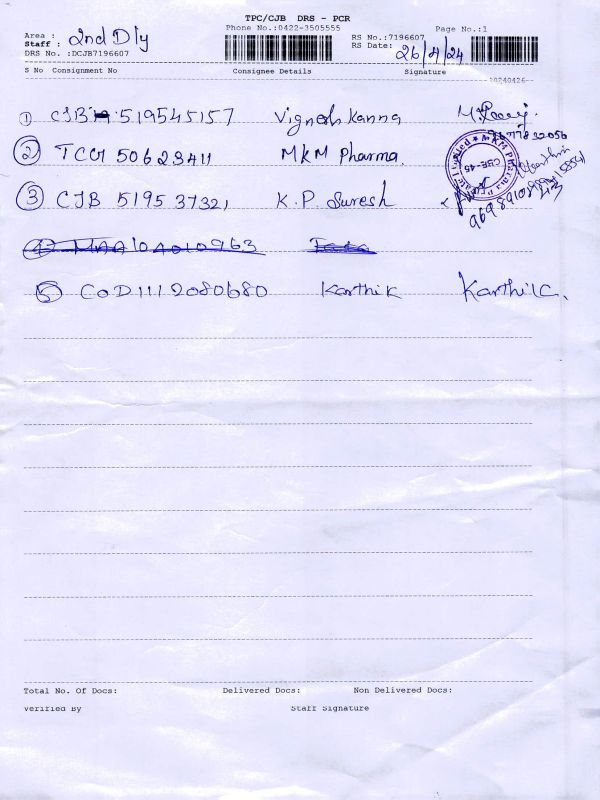 TPC/CJB DRS - PCR
Phone No.:0422-3505555
Page No.:1
Area : 2nd Dly
Staff :
RS No.:7196607
RS Date: 26/4/24
DRS No. :DCJB7196607
S No Consignment No Consignee Details Signature
10240426
1 CJB 519545157 Vignesh Kanna
2 TCM 50623411 MKM Pharma.
CBE-45
3 CJB 519537321 K.P. Suresh
4 MAA104010963
5 COD1112080680 Karthik Karthik.
Total No. Of Docs: Delivered Docs: Non Delivered Docs:
Verified By Staff Signature